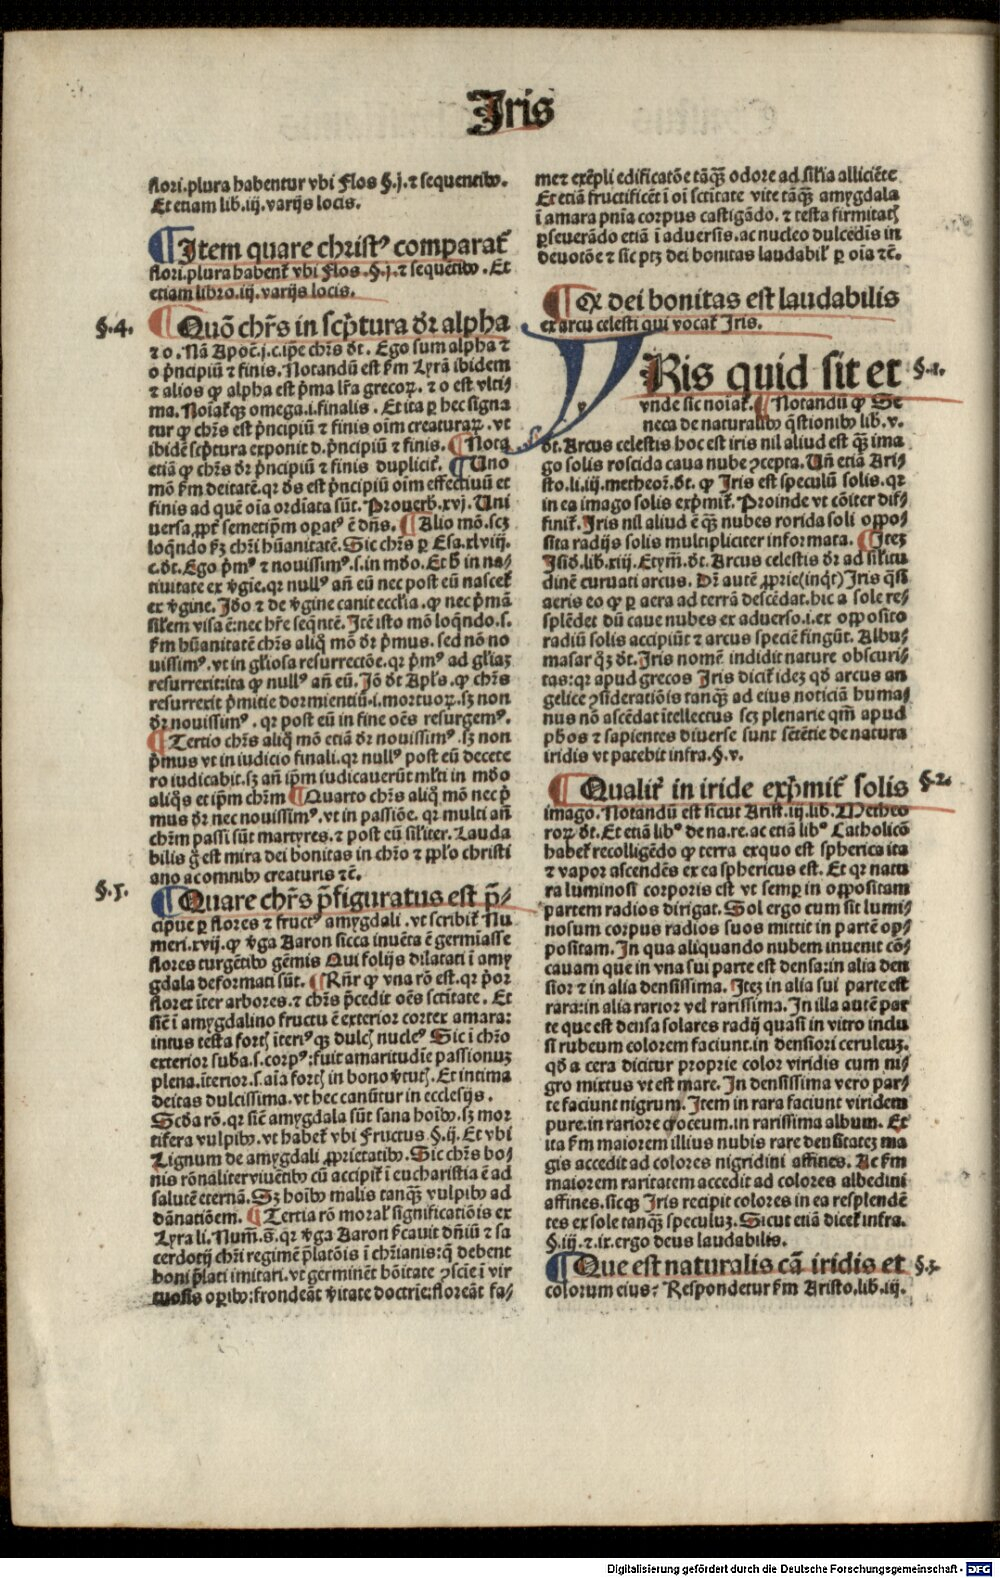 Iris
flori.plura habentur vbi Flos §.j.⁊ sequentibꝰ.
Et etiam lib.iij.varijs locis.
¶Item quare christꝰ comparat᷑
flori.plura habent᷑ vbi Flos .§.j.⁊ sequētibꝰ. Et
etiam libro.iij.varijs locis.
§.4.
¶Quō chr̄s in scp̄tura dr̄ alpha
⁊ o. Nā Apoc̄.j.c.ip̄e chr̄s dt̄. Ego sum alpha ⁊
o p̄ncipiū ⁊ finis. Notandū est ẜm Lyrā ibidem
⁊ alios ꝙ alpha est p̄ma lr̄a grecoꝝ. ⁊ o est vlti⸗
ma. Noiat᷑qꝫ omega.i.finalis. Et ita ꝑ hec signa
tur ꝙ chr̄s est p̄ncipiū ⁊ finis oim̄ creaturaꝝ. vt
ibidē scp̄tura exponit d.p̄ncipiū ⁊ finis. ¶Nota
etiā ꝙ chr̄s dr̄ p̄ncipiū ⁊ finis duplicit᷑. ¶Uno
mō ẜm deitatē.qꝛ ds̄ est p̄ncipiū oim̄ effectiuū et
finis ad quē oīa ordiata sūt. Prouerb.xvj. Uni
uersa ꝓpt᷑ semetip̄m oꝑatꝰ ē dn̄s. ¶Alio mō.scꝫ
loq̄ndo ẜꝫ chr̄i hūanitatē. Sic chr̄s ꝑ Esa.xlviij.
c.dt̄. Ego p̄mꝰ ⁊ nouissimꝰ.s.in mūdo. Et h̄ in na⸗
tiuitate ex v̄gīe.qꝛ nullꝰ an̄ eū nec post eū nascet᷑
ex v̄gine. Iō ⁊ de v̄gine canit eccl̄ia. ꝙ nec p̄mā
sil̄em visa ē:nec hr̄e seq̄ntē. Itē isto mō loq̄ndo.s.
ẜm hūanitatē chr̄s aliq̄ mō dr̄ p̄mus. sed nō no
uissimꝰ.vt in gl̄iosa resurrectōe.qꝛ p̄mꝰ ad gl̄iaꝫ
resurrexit:ita ꝙ nullꝰ an̄ eū. Iō dt̄ Apl̄s. ꝙ chr̄s
resurrexit p̄mitie dormientiū.i.mortuoꝝ.sꝫ non
dr̄ nouissimꝰ. qꝛ post eū in fine oēs resurgemꝰ.
¶Tertio chr̄s aliq̄ mō etiā dr̄ nouissimꝰ.sꝫ non
p̄mus vt in iudicio finali.qꝛ nullꝰ post eū de cete
ro iudicabit.sꝫ an̄ ip̄m iudicauerūt ml̄ti in mūdo
aliq̄s et ip̄m chr̄m ¶Quarto chr̄s aliq̄ mō nec p̄
mus dr̄ nec nouissimꝰ.vt in passiōe. qꝛ multi an̄
chr̄m passi sūt martyres. ⁊ post eū sil̄iter. Lauda
bilis g̊ est mira dei bonitas in chr̄o ⁊ ppl̄o christi
ano ac omnibꝰ creaturis ⁊c̄.
§.5.
¶Quare chr̄s p̄figuratus est p̄⸗
cipue ꝑ flores ⁊ fructꝰ amygdali .vt scribit᷑ Nu
meri.xvij.ꝙ v̄ga Aaron sicca inuēta ē germīasse
flores turgētibꝰ gēmis Qui folijs dilatati ī amy
gdala deformati sūt. ¶Rn̄r ꝙ vna rō est.qꝛ p̄or
floret īter arbores.⁊ chr̄s p̄cedit oēs sctītate. Et
sic̄ ī amygdalino fructu ē exterior cortex amara:
intus testa fort᷑ īteriꝰ qꝫ dulc᷑ nucleꝰ Sic ī chr̄o
exterior suba.s.corpꝰ:fuit amaritudīe passionuꝫ
plena.īterior.s.aīa fort᷑ in bono v̄tut᷑. Et intima
deitas dulcissima.vt hec canūtur in ecclesijs.
Scd̄a rō.qꝛ sic̄ amygdala sūt sana hoībꝰ.sꝫ mor
tifera vulpibꝰ.vt habet᷑ vbi Fructus §.ij. Et vbi
Lignum de amygdali ꝓprietatibꝰ. Sic chr̄s bo⸗
nis rōnaliter viuētibꝰ cū accipit᷑ ī eucharistia ē ad
salutē eternā. Sꝫ hoībꝰ malis tanqꝫ̄ vulpibꝰ ad
dānatiōem. ¶Tertia rō moral᷑ significatiōis ex
Lyra li. Num̄.s̄.qꝛ v̄ga Aaron p̄cauit dn̄iū ⁊ sa
cerdotij chr̄i regimē p̄latōis ī chr̄ianis:q̄ debent
boni p̄lati imitari.vt germinēt bōitate ꝯscīe ī vir
tuosis oꝑibꝰ:frondeāt v̄itate doctrīe:floreāt fa⸗
met exēpli edificatōe tāqꝫ̄ odore ad sil̄ia alliciēte
Et etiā fructificēt ī oī sctītate vite tāqꝫ̄ amygdala
ī amara pn̄ia corpus castigādo. ⁊ testa firmitat᷑
ꝑseuerādo etiā ī aduersis.ac nucleo dulcedīs in
deuotōe ⁊ sic ptꝫ dei bonitas laudabil᷑ ꝑ oīa ⁊c̄.
¶Qꝛ dei bonitas est laudabilis
ex arcu celesti qui vocat᷑ Iris.
§.1.
IRis quid sit et
vnde sic noiat᷑.¶Notandū ꝙ Se
neca de naturalibꝰ q̄stionibꝰ lib.v.
dt̄. Arcus celestis hoc est iris nil aliud est qꝫ̄ ima
go solis roscida caua nube ꝯcepta. Un̄ etiā Ari⸗
sto.li.iij.metheoꝝ.dt̄. ꝙ Iris est speculū solis.qꝛ
in ea imago solis exp̄mit᷑. Proinde vt cōiter dif⸗
finit᷑. Iris nil aliud ē qꝫ̄ nubes rorida soli oppo⸗
sita radijs solis multipliciter informata. ¶Iteꝫ
Isid̄.lib.xiij. Etym̄.dt̄. Arcus celestis dr̄ ad sil̄itu
dinē curuati arcus. Dr̄ autē ꝓprie(inq̇t) Iris q̄si
aeris eo ꝙ ꝑ aera ad terrā descēdat.hic a sole re⸗
splēdet dū caue nubes ex aduerso.i.ex opposito
radiū solis accipiūt ⁊ arcus speciē fingūt. Albu⸗
masar q̄ꝫ dt̄. Iris nomē indidit nature obscuri⸗
tas:qꝛ apud grecos Iris dicit᷑ ideꝫ qd̄ arcus an
gelice ꝯsideratiōis tanqꝫ̄ ad eius noticiā huma⸗
nus nō ascēdat ītellectus scꝫ plenarie qm̄ apud
ph̄os ⁊ sapientes diuerse sunt sētētie de natura
iridis vt patebit infra.§.v.
§.2.
¶Qualit᷑ in iride exp̄mit᷑ solis
imago. Notandū est sicut Arist̄.iij.lib. Metheo
roꝝ dt̄. Et etiā libꝰ de na.re.ac etiā libꝰ Catholicō
habet᷑ recolligēdo ꝙ terra exquo est spherica ita
⁊ vapor ascendēs ex ea sphericus est. Et qꝛ natu
ra luminosi corporis est vt semꝑ in oppositam
partem radios dirigat. Sol ergo cum sit lumi⸗
nosum corpus radios suos mittit in partē op⸗
positam. In qua aliquando nubem inuenit cō⸗
cauam que in vna sui parte est densa:in alia den
sior ⁊ in alia densissima. Iteꝫ in alia sui parte est
rara:in alia rarior vel rarissima. In illa autē par
te que est densa solares radij quasi in vitro inclu
si rubeum colorem faciunt.in densiori ceruleuꝫ.
qd̄ a cera dicitur proprie color viridis cum ni⸗
gro mixtus vt est mare. In densissima vero par⸗
te faciunt nigrum. Item in rara faciunt viridem
pure.in rariore croceum.in rarissima album. Et
ita ẜm maiorem illius nubis rare densitateꝫ ma
gis accedit ad colores nigridini affines. Ac ẜm
maiorem raritatem accedit ad colores albedini
affines.sicqꝫ Iris recipit colores in ea resplendē
tes ex sole tanqꝫ̄ speculuꝫ. Sicut etiā dicet᷑ infra.
§.iij.⁊.ix.ergo deus laudabilis.
§.3.
¶Que est naturalis cā iridis et
colorum eius? Respondetur ẜm Aristo.lib.iij.
Digitalisierung gefördert durch die Deutsche Forschungsgemeinschaft - DFG